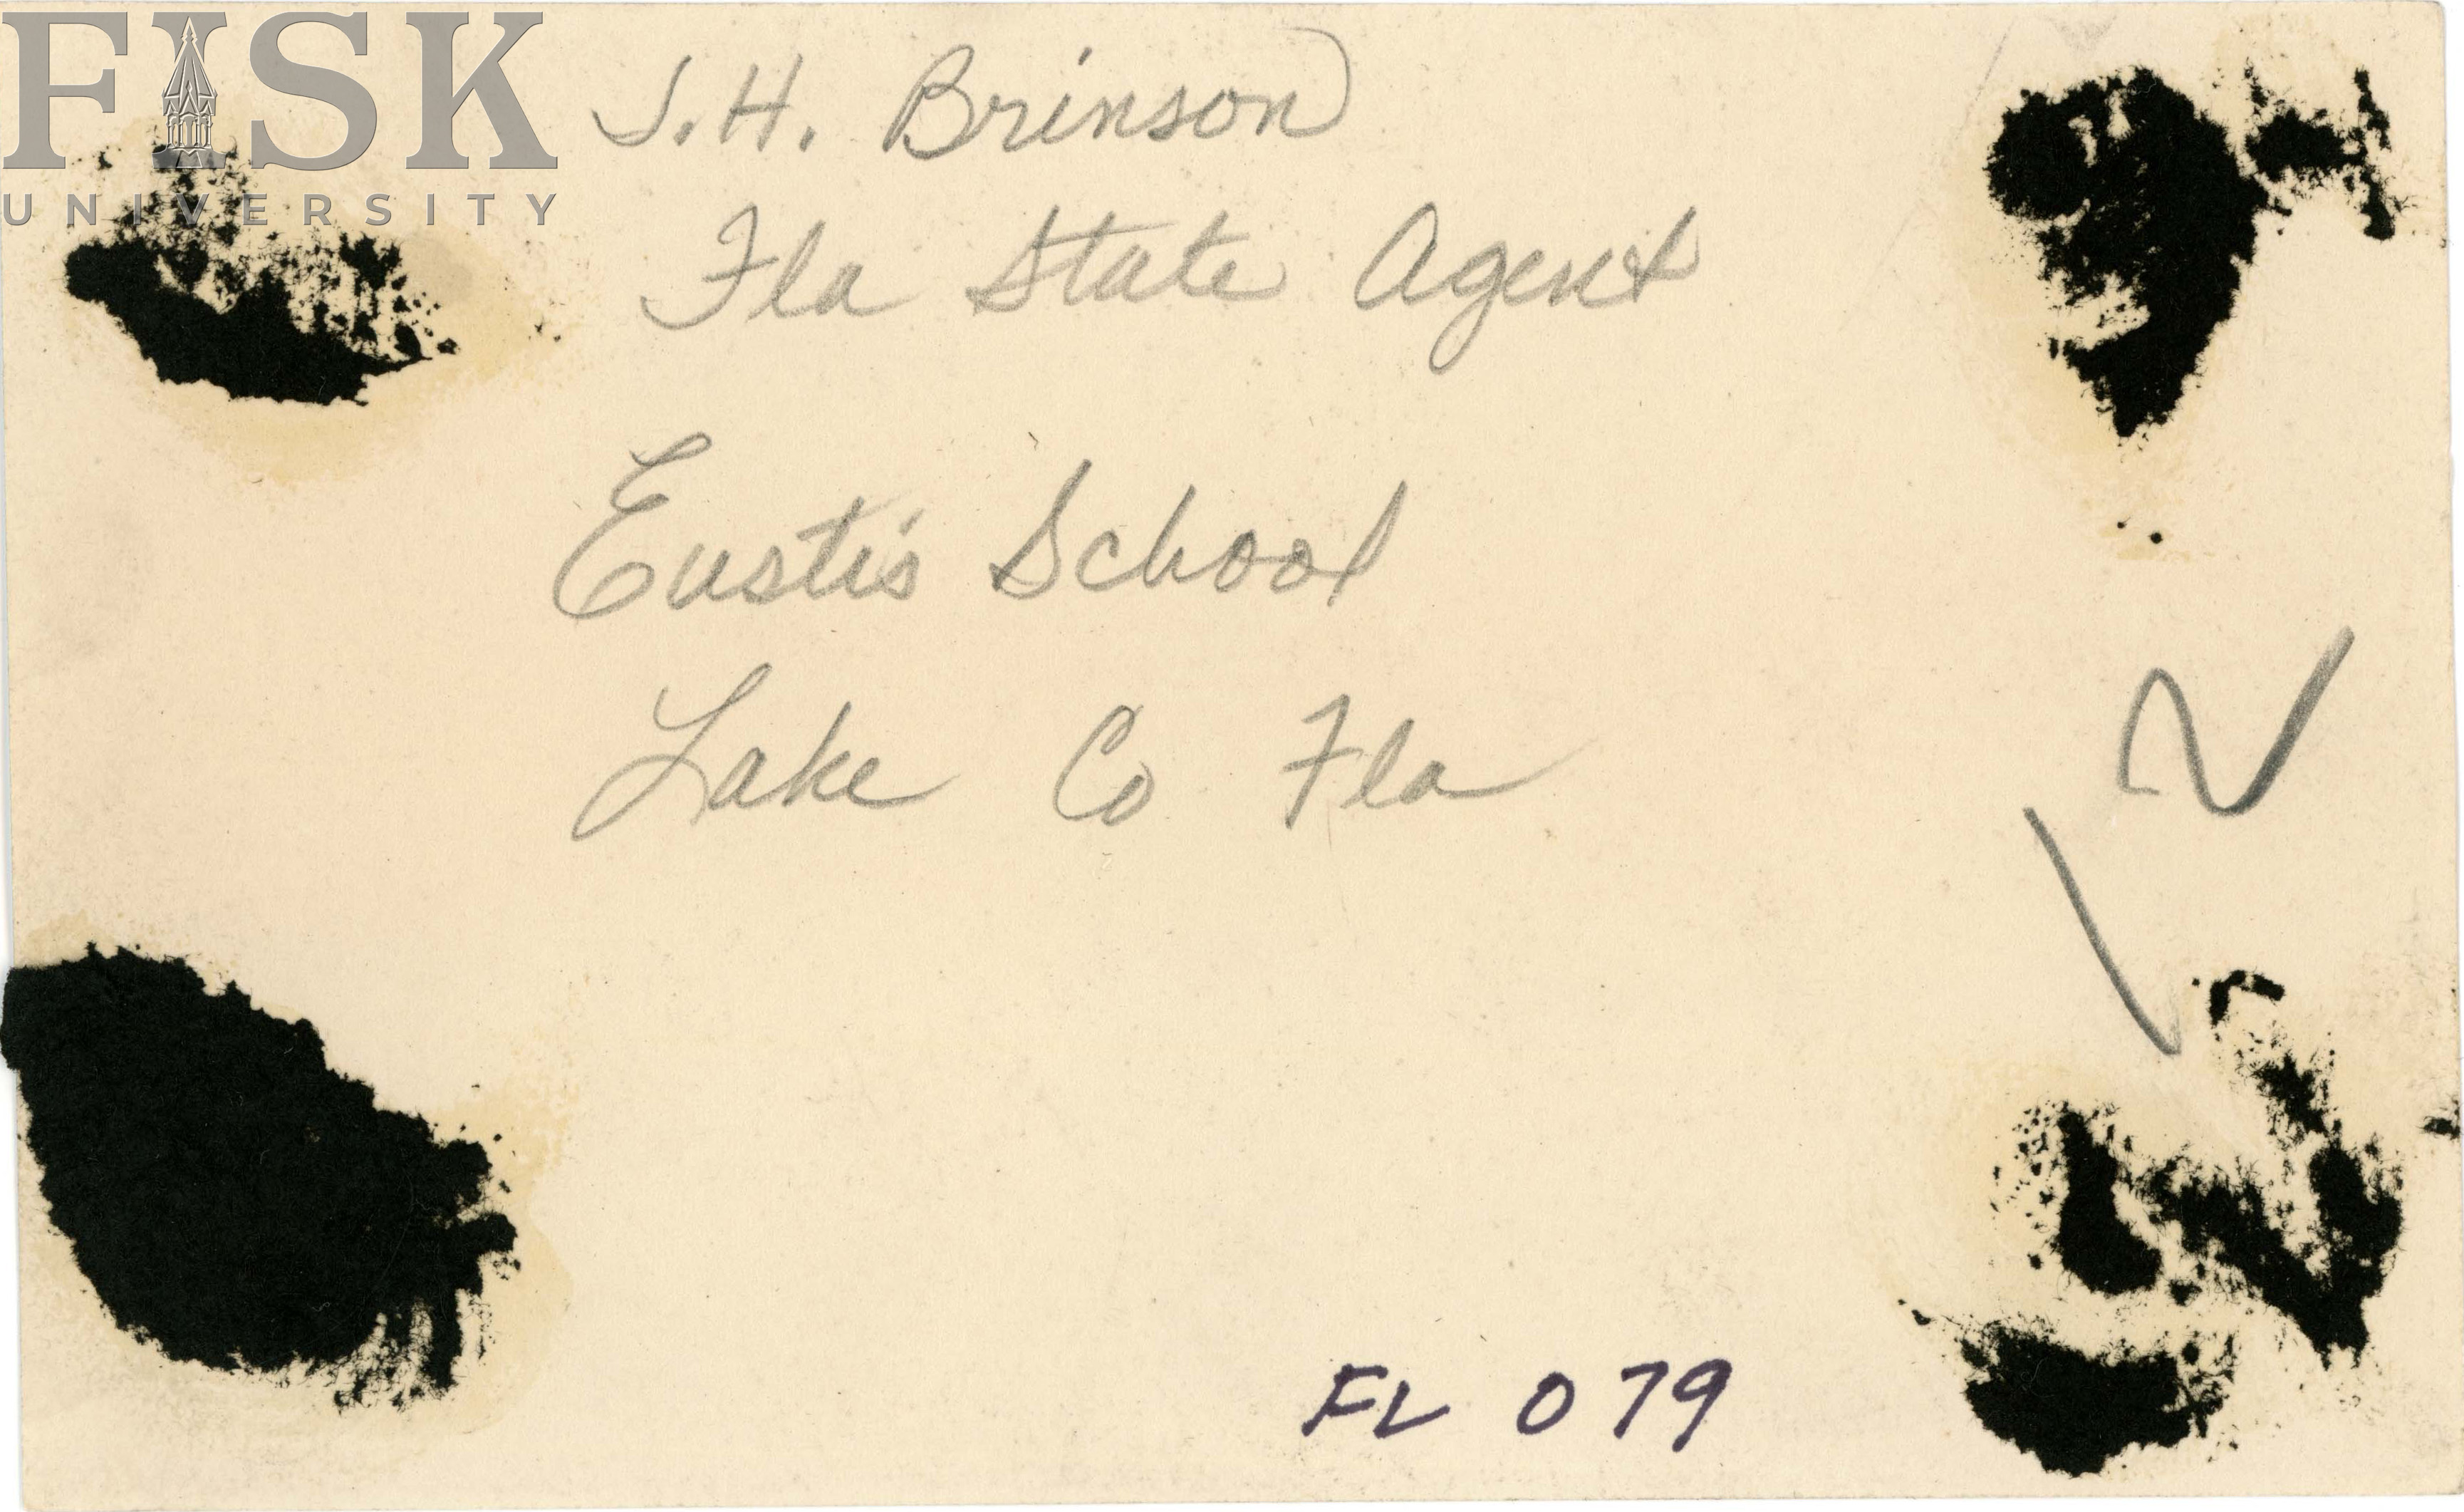 FISK
UNIVERSITY
J.H. Brinson
Fla State Agent
Eustis School
Lake Co Fla
FL 079